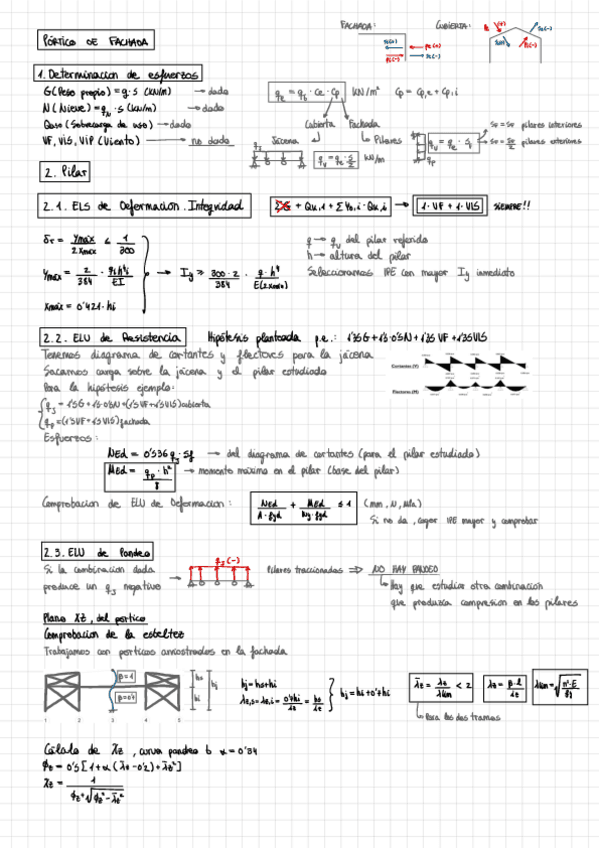 PÓRTICO DE FACHADA
FACHADA:
CUBIERTA:
1. Determinacion de esfuerzos
G (Peso propio) = g · s (kN/m) → dado
N (Nieve) = qN · s (kN/m) → dado
Qsu (Sobrecarga de uso) → dado
VF, VIS, VIP (Viento) → no dado
qe = qb · ce · cp kN/m² Cp = Cp,e + Cp,i
Cubierta Fachada
Jácena Pilares
kN/m
pilares interiores
pilares exteriores
2. Pilar
2.1. ELS de Deformacion. Integridad
+ Qk,1 + Σψ0,i · Qk,i → 1·VF + 1·VIS SIEMPRE!!
δr = ymáx / 2xmáx ≤ 1/300
ymáx = 2/384 · qp h⁴i / EI → Iy ≥ 300·2/384 · q·h⁴ / E(2xmáx)
xmáx = 0'421·hi
q → qp del pilar referido
h → altura del pilar
Seleccionamos IPE con mayor Iy inmediato
2.2. ELU de Resistencia Hipótesis planteada p.e.: 1'35G + 1'5·0'5N + 1'35 VF + 1'35VIS
Tenemos diagrama de cortantes y flectores para la jácena
Sacamos carga sobre la jácena y el pilar estudiado
Para la hipótesis ejemplo:
Cortantes (V)
Flectores (M)
qp = (1'5VF + 1'5VIS) fachada
Esfuerzos:
NEd = 0'536 qj · Sf → del diagrama de cortantes (para el pilar estudiado)
MEd = qp · h² / 8 → momento máximo en el pilar (base del pilar)
Comprobacion de ELU de Deformacion: NEd / A·fyd + MEd / Wy·fyd ≤ 1 (mm, N, MPa)
Si no da, coger IPE mayor y comprobar
2.3. ELU de Pandeo
Si la combinación dada
produce un qj negativo →
qj (-)
Pilares traccionados ⇒ NO HAY PANDEO
Hay que estudiar otra combinación
que produzca compresion en los pilares
Plano XZ, del pórtico
Comprobacion de la esbeltez
Trabajamos con pórticos arriostrados en la fachada
β = 1
β = 0'7
hs
hi
hj
1 2 3 4 5
hj = hs + hi
λz,s = λz,i = 0'7hi / iz = hs / iz
hj = hi + 0'7hi
λ̄z = λz / λlim < 2
λz = β·l / iz
λlim = √(π²·E / fy)
Para los dos tramos
Cálculo de χz, curva pandeo b α = 0'34
φz = 0'5 [1 + α (λ̄z - 0'2) + λ̄z²]
χz = 1 / φz + √(φz² - λ̄z²)